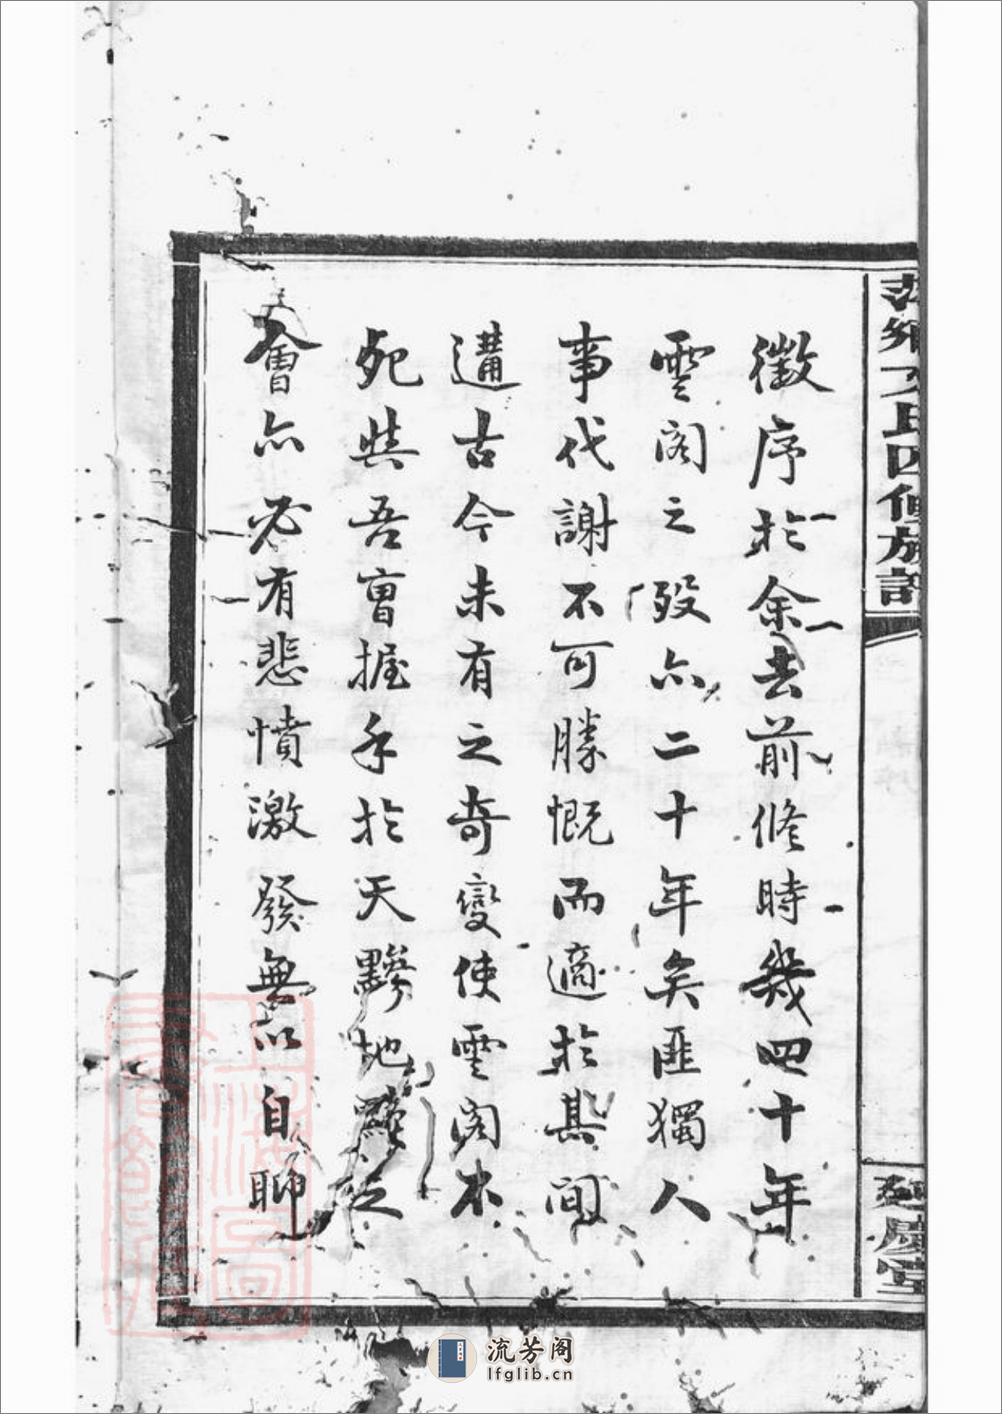 徵序於余去前修時幾四十年
雲閣之歿亦二十年矣匪獨人
事代謝不可勝慨而適於其間
遘古今未有之奇變使雲閣不
死與吾曹握手於天黪地黷之
會亦必有悲憤激發無以自聊
萍鄉文氏四修族譜
流芳阁
lfglib.cn